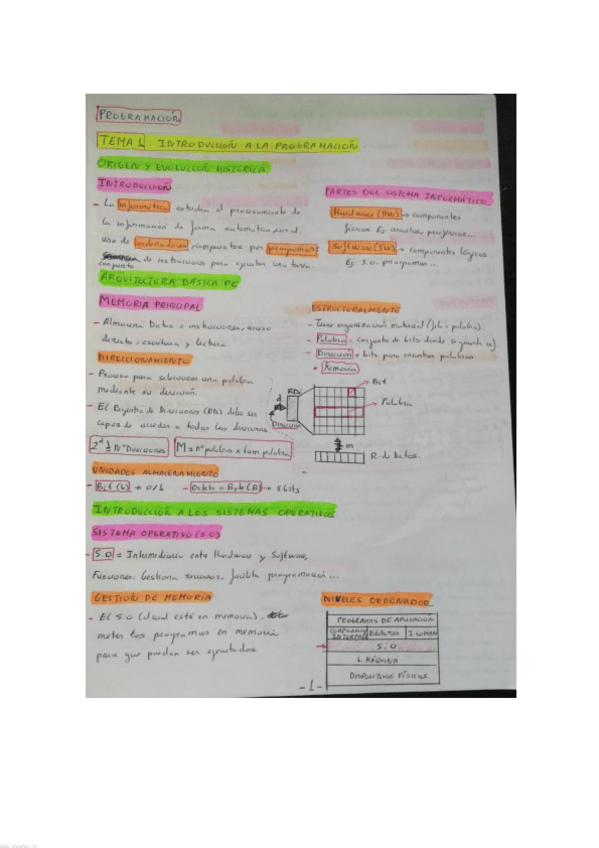 PROGRAMACIÓN
TEMA 1: INTRODUCCIÓN A LA PROGRAMACIÓN
ORIGEN Y EVOLUCIÓN HISTÓRICA
INTRODUCCIÓN
- La informática estudia el procesamiento de
la información de forma automática con el
uso de ordenadores compuestos por programas
conjunto de instrucciones para ejecutar una tarea.
PARTES DEL SISTEMA INFORMÁTICO
Hardware (HW) → componentes
físicos. Ej:
Software (SW) → componentes lógicos
Ej: S.O. programas...
ARQUITECTURA BÁSICA PC
MEMORIA PRINCIPAL
- Almacena Datos e instrucciones, acceso
directo, escritura y lectura.
DIRECCIONAMIENTO
- Proceso para seleccionar una palabra
mediante su dirección.
- El Registro de Direcciones (RD) debe ser
capaz de acceder a todas las direcciones
2^d Nº Direcciones
M = nº palabras x tam palabra
ESTRUCTURALMENTE
- Tiene organización matricial
- Palabra = conjunto de bits donde se guarda
- Dirección = bits para encontrar palabras
• Memoria
Bit
RD
Palabra
d
Dirección
m
R. de Datos.
UNIDADES ALMACENAMIENTO
- Bit (b) → 0/1 - Octeto = Byte (B) → 8 bits
INTRODUCCIÓN A LOS SISTEMAS OPERATIVOS
SISTEMA OPERATIVO (S.O)
- S.O = Intermediario entre Hardware y Software.
Funciones: Gestiona recursos, facilita programación...
GESTIÓN DE MEMORIA
- El S.O (el cual está en memoria),
meter los programas en memoria
para que puedan ser ejecutados
NIVELES ORDENADOR
PROGRAMAS DE APLICACIÓN
EDITORES
S.O
L. MÁQUINA
DISPOSITIVOS FÍSICOS.
- 1 -